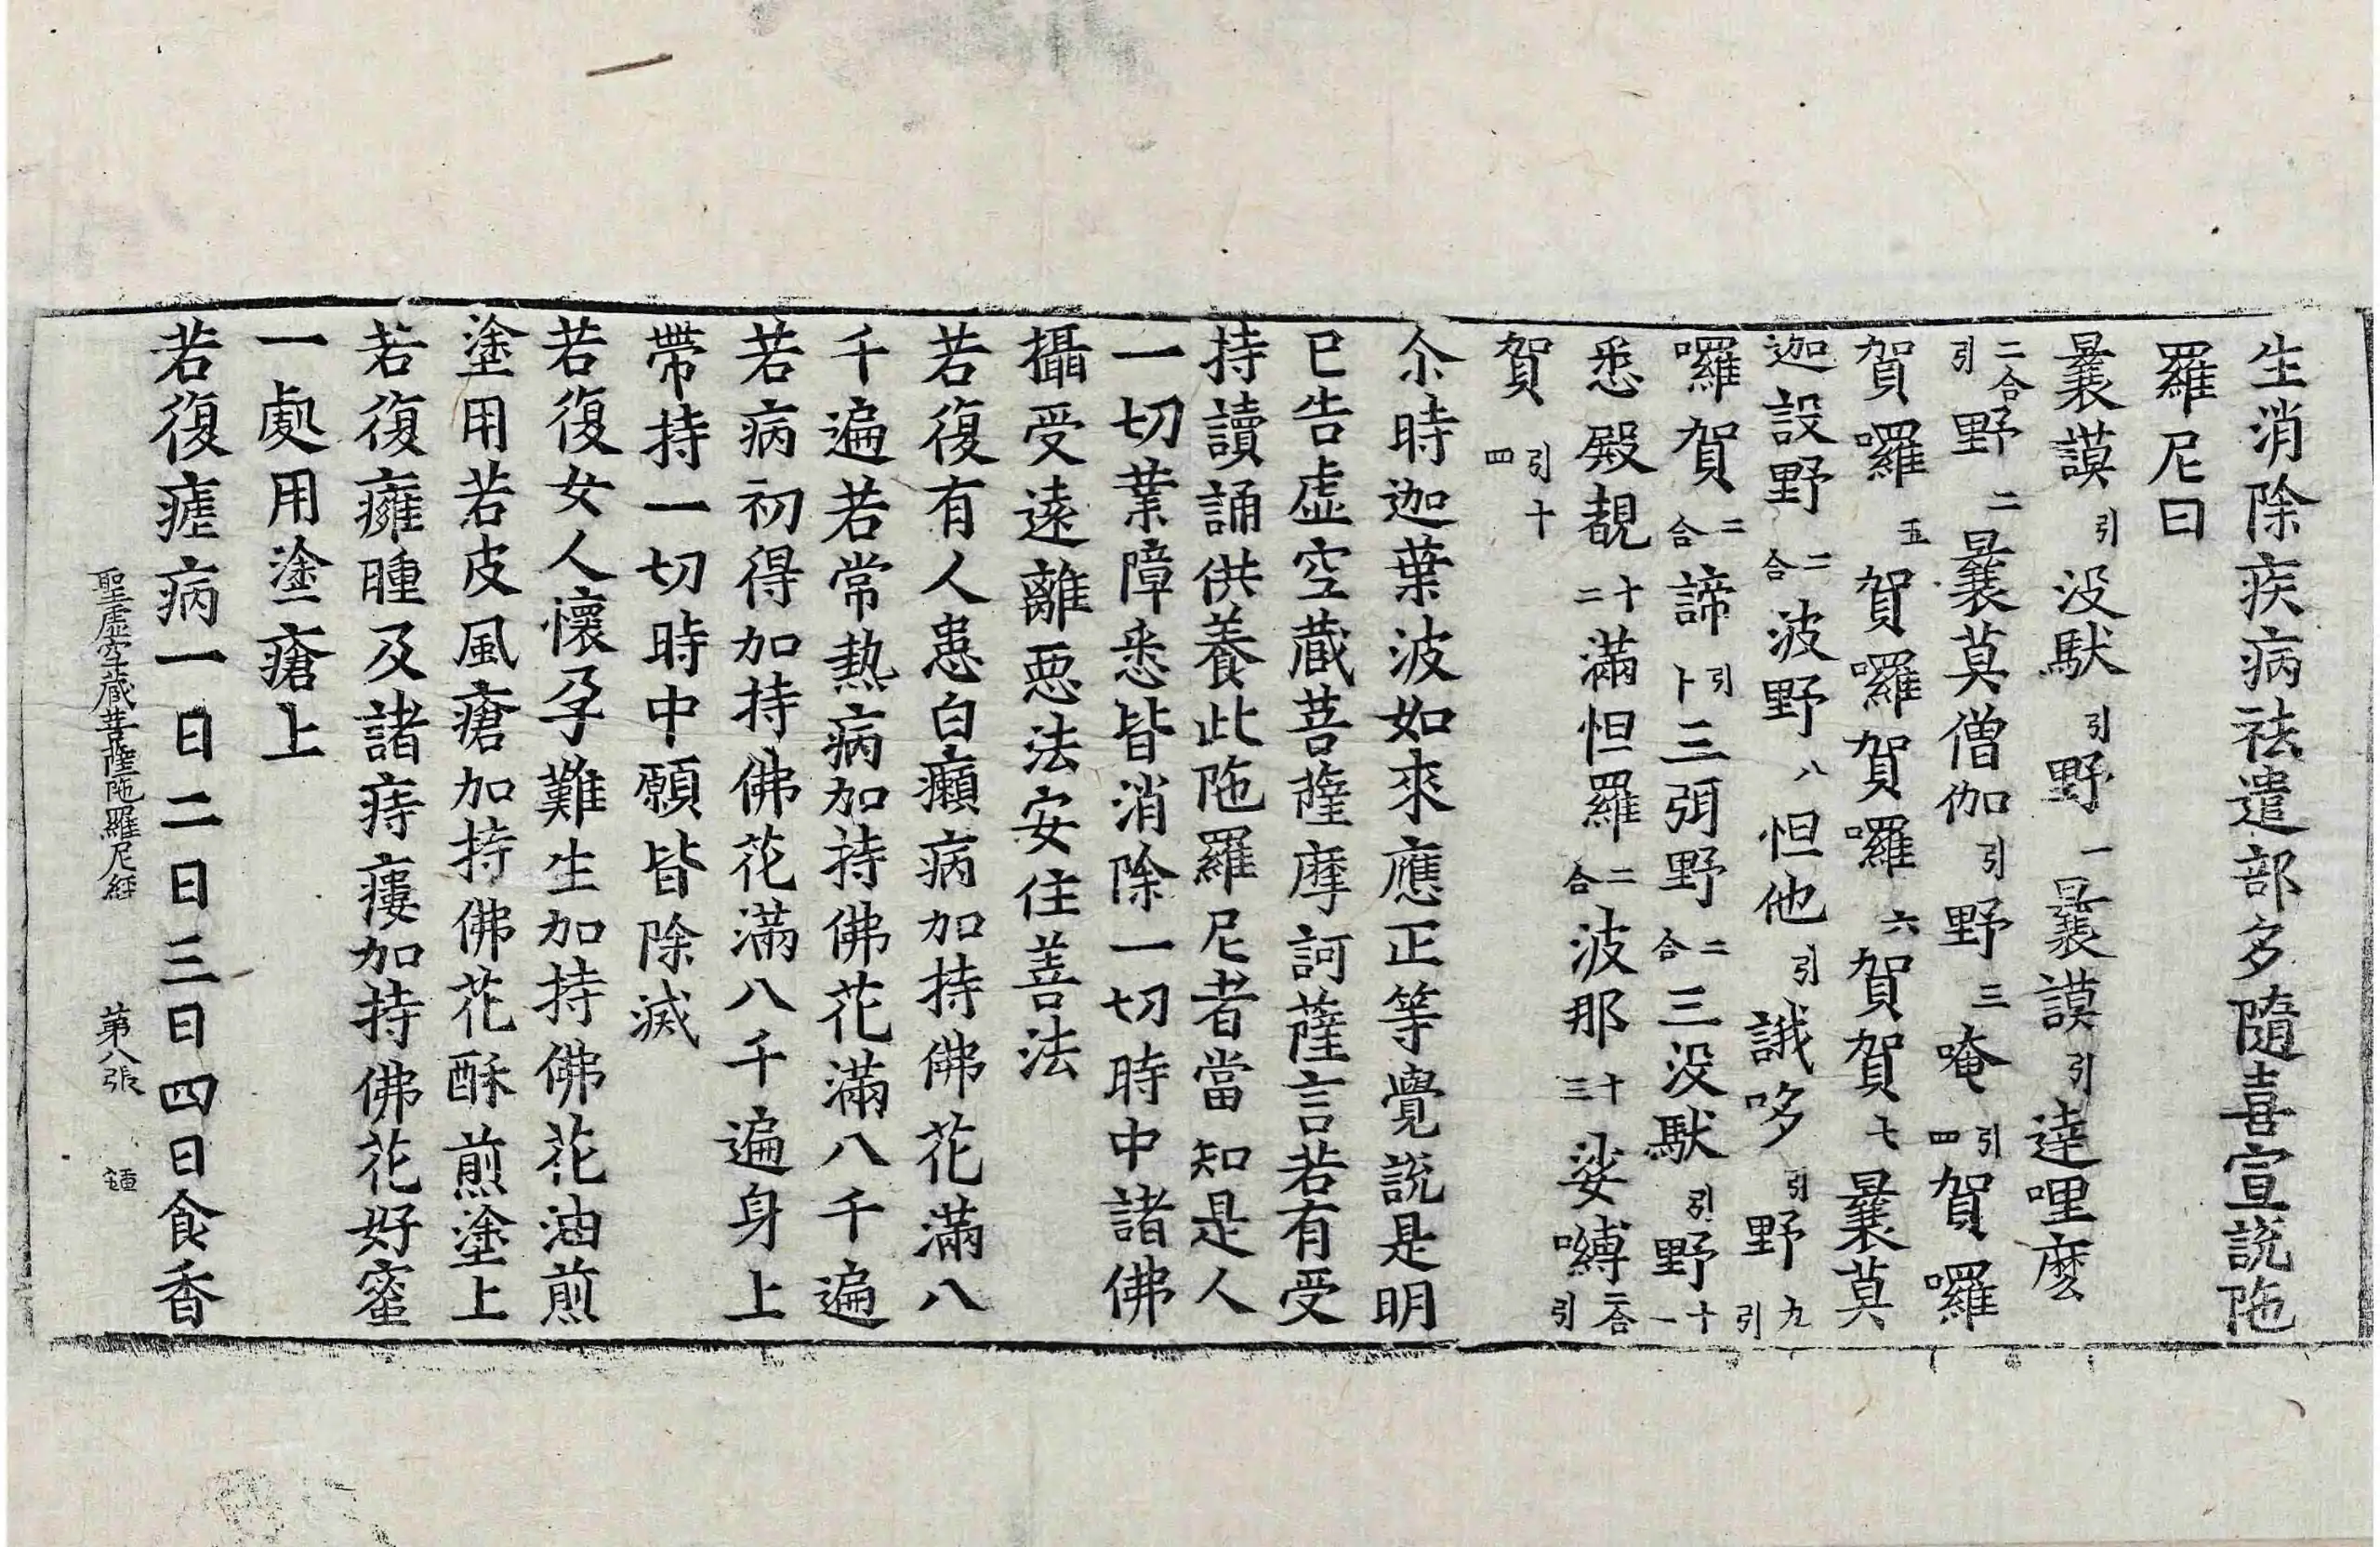 生消除疾病祛遣部多隨喜宣說陁
羅尼曰
曩謨引没馱引野一曩謨引達哩麽
二合引野二曩莫僧伽引野三唵引四賀囉
賀囉五賀囉賀囉六賀賀七曩莫
迦設野二合波野八怛他引誐哆引野九引
囉賀二合諦引卜三弭野二合三没馱引野十一
悉殿覩十二滿怛羅二合波那十三娑嚩二合引
賀引十四
尒時迦葉波如來應正等覺說是明
已告虛空藏菩薩摩訶薩言若有受
持讀誦供養此陁羅尼者當知是人
一切業障悉皆消除一切時中諸佛
攝受遠離惡法安住善法
若復有人患白癩病加持佛花滿八
千遍若常熱病加持佛花滿八千遍
若病初得加持佛花滿八千遍身上
帶持一切時中願皆除滅
若復女人懷孕難生加持佛花油煎
塗用若皮風瘡加持佛花酥煎塗上
若復癰腫及諸痔瘻加持佛花好蜜
一處用塗瘡上
若復瘧病一日二日三日四日食香
聖虛空藏菩薩陁羅尼經 第八張 鍾